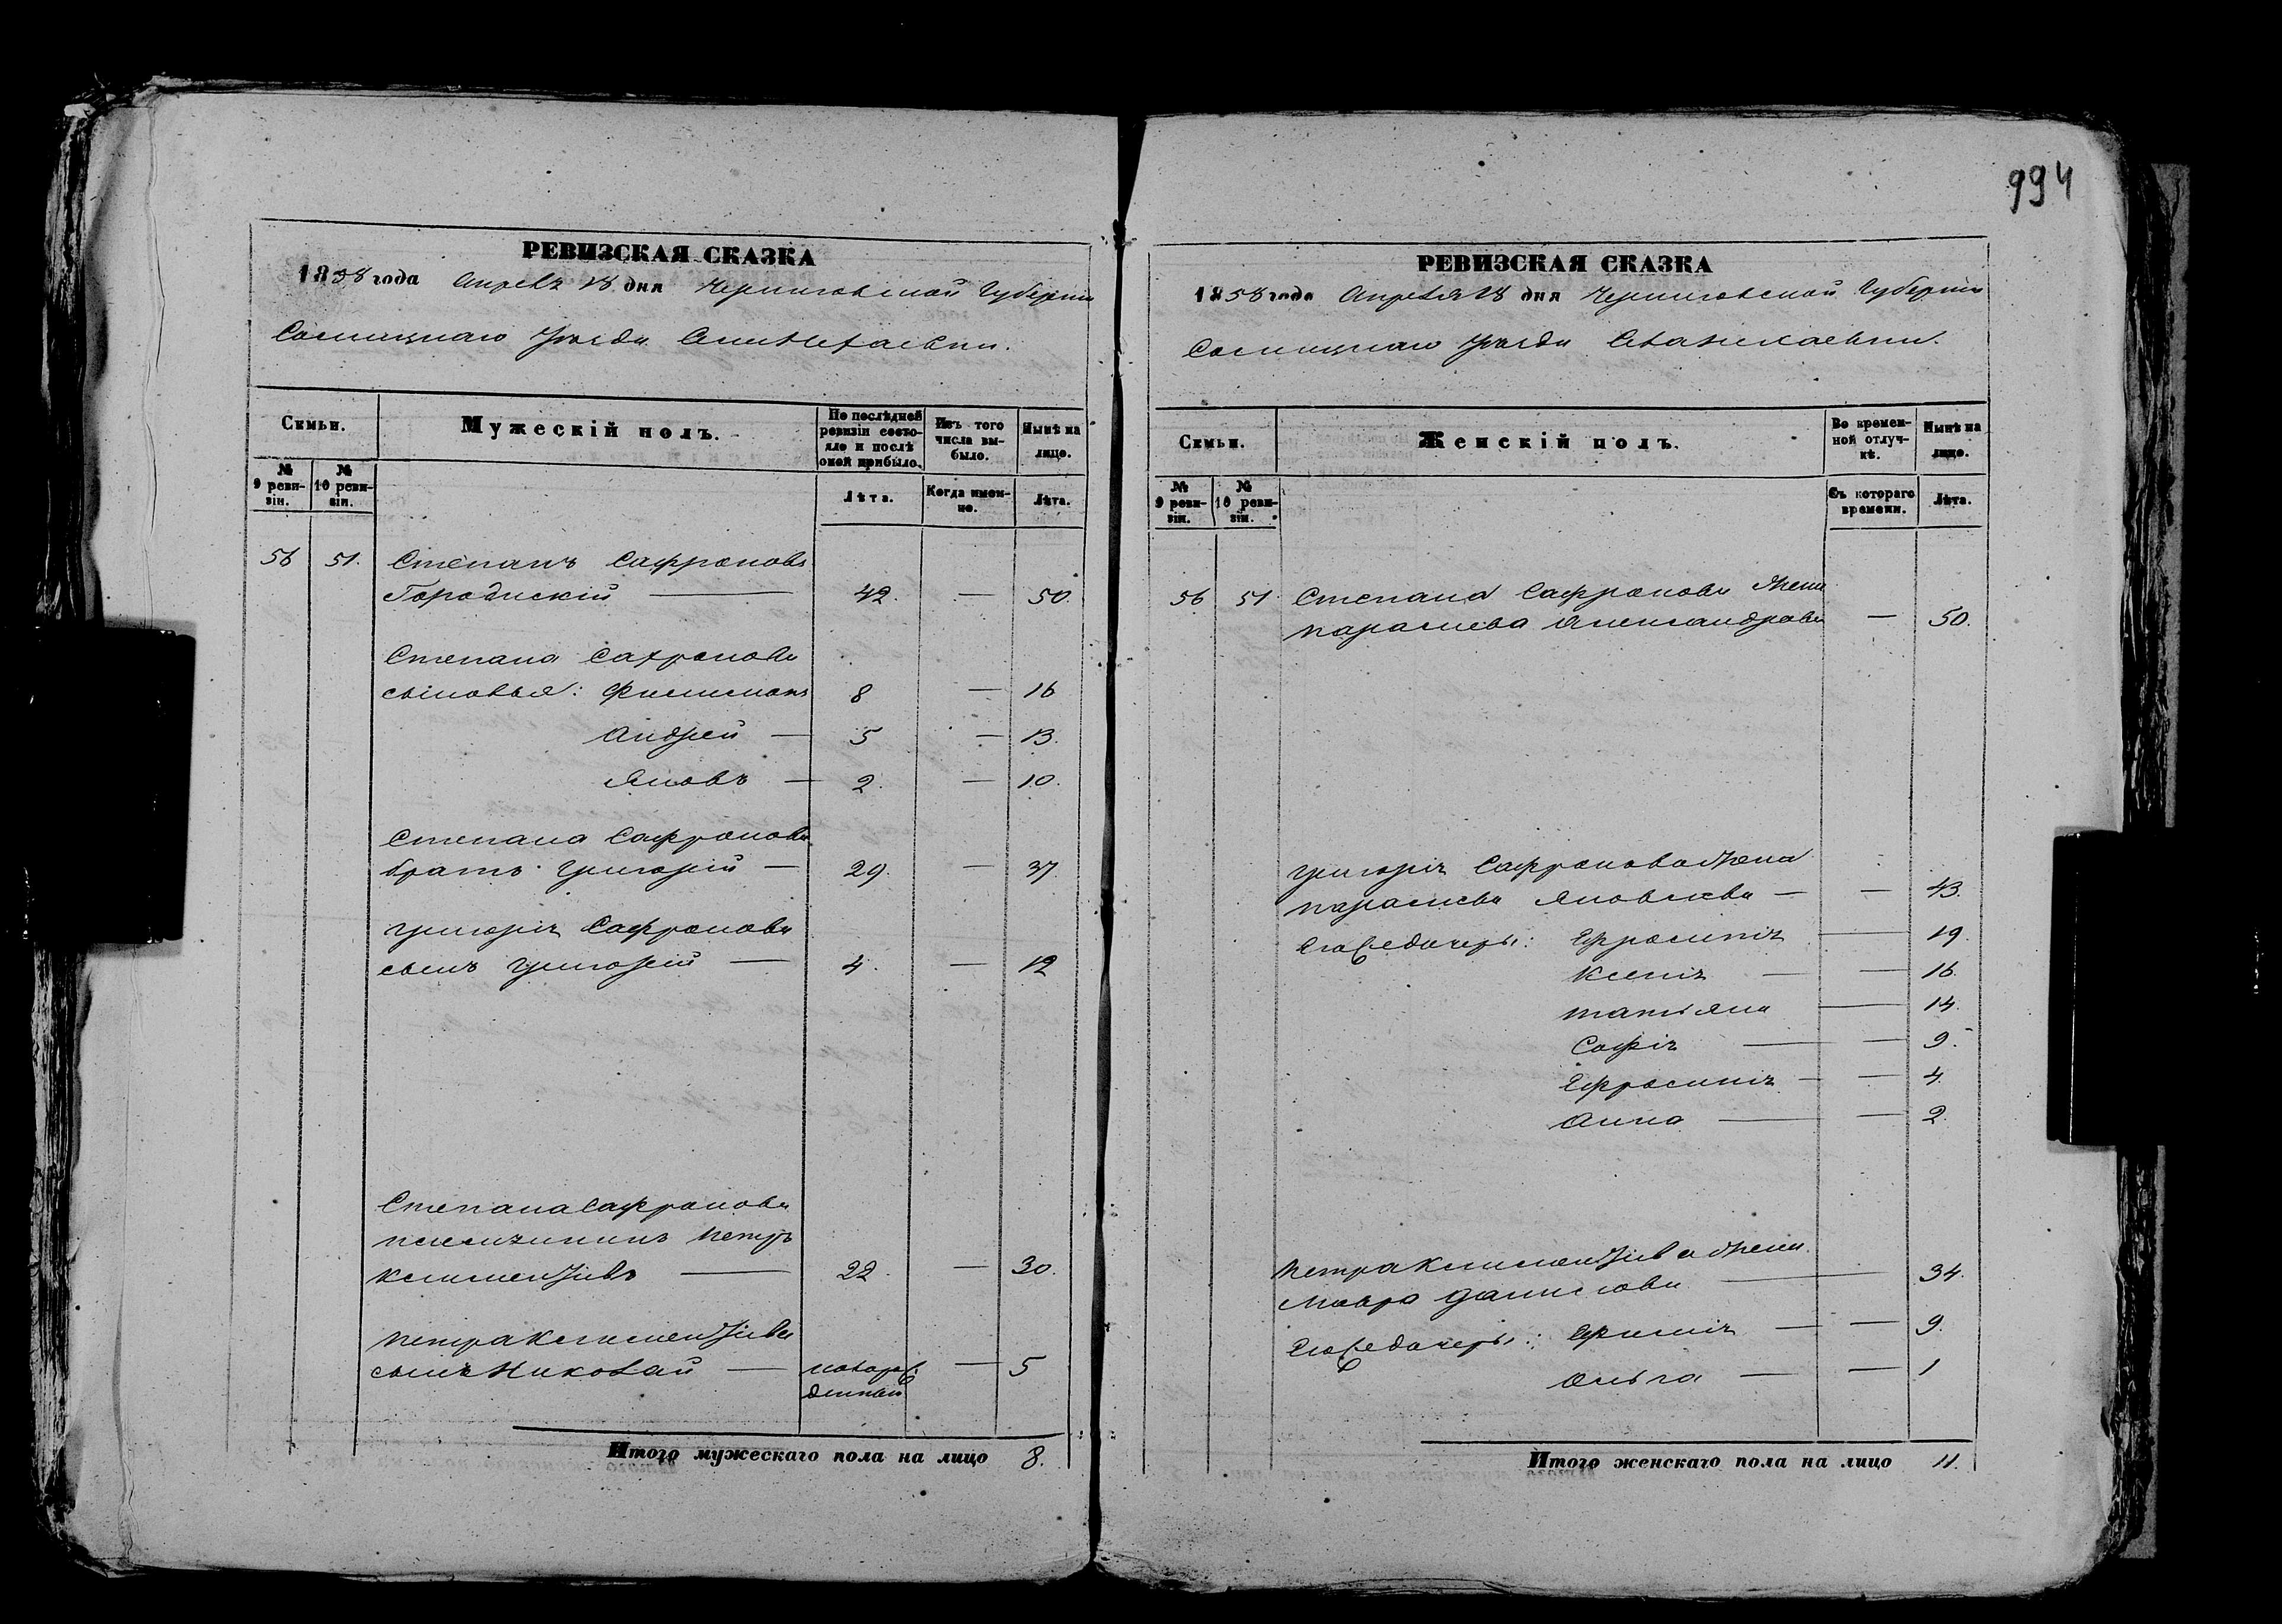 994
РЕВИЗСКАЯ СКАЗКА
1858 года Апреля 18 дня Черниговской Губернии
Сосницкаго уезда
Семьи.
Мужескій полъ.
По послѣдней ревизіи состояло и послѣ оной прибыло.
Изъ того числа выбыло.
Нынѣ на лицо.
№ 9 ревизіи.
№ 10 ревизіи.
Лѣта.
Когда именно.
Лѣта.
56 51. Степанъ Сафроновъ
Городнскій — 42. — 50.
Степана Сафронова
сыновья: Филимонъ 8 — 16
Андрей — 5 — 13.
Яковъ — 2. — 10.
Степана Сафронова
братъ Григорій — 29. — 37
Григорія Сафронова
сынъ Григорій — 4. — 12
Степана Сафронова
племянникъ Петръ
Климентіевъ — 22. — 30.
Петра Климентіева
сынъ Николай — новорожденный — 5
Итого мужескаго пола на лицо 8.
РЕВИЗСКАЯ СКАЗКА
1858 года Апреля 18 дня Черниговской Губернии
Сосницкаго уезда
Семьи.
Женскій полъ.
Во временной отлучкѣ.
Нынѣ на лицо.
№ 9 ревизіи.
№ 10 ревизіи.
Съ котораго времени.
Лѣта.
56 51. Степана Сафронова жена
Параскева Александрова — 50.
Григорія Сафронова жена
Параскева Яковлева — — 43.
Его дочери: Ефросинія — 19.
Ксенія — — 16.
Татьяна — 14.
Софія — — 9.
Ефросинія — — 4.
Анна — — 2.
Петра Климентіева жена
Мавра Данилова — 34.
Его дочери: Ефимія — — 9.
Ольга — — 1
Итого женскаго пола на лицо 11.